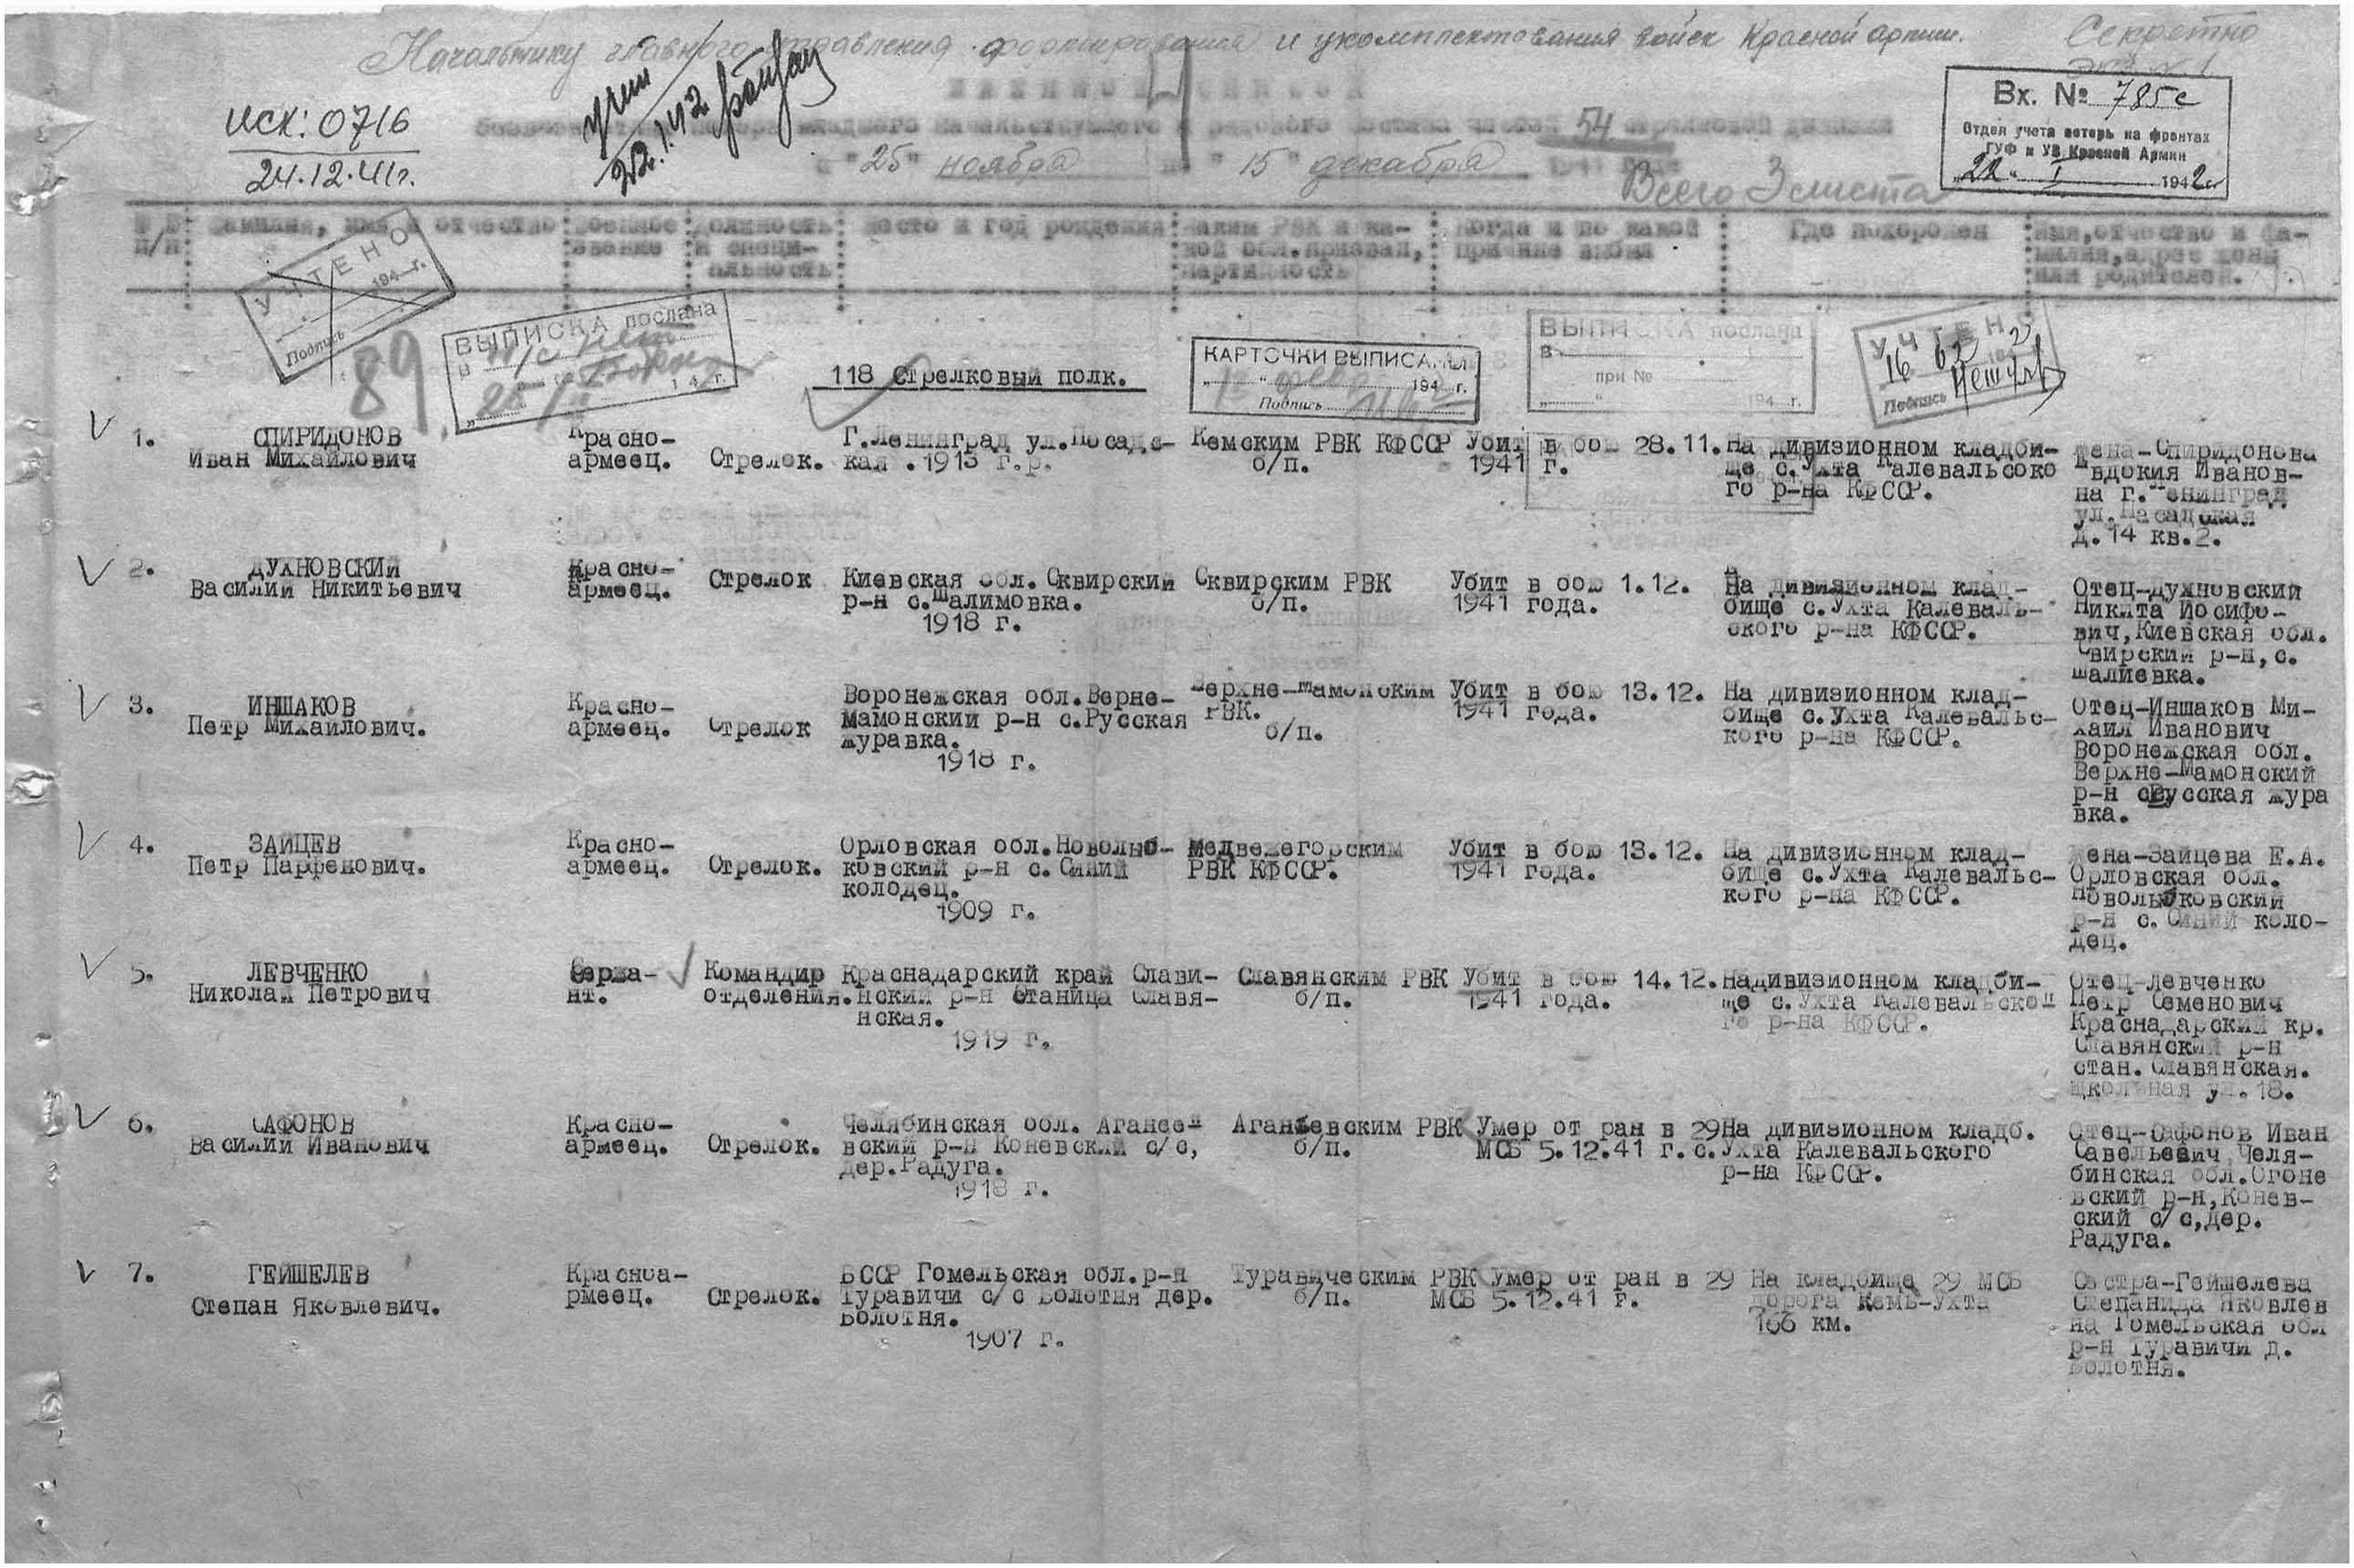 Начальнику главного управления формирования и укомплектования войск Красной армии.
Секретно
экз № 1
исх: 0716
24.12.41г.
22.1.42
Вх. № 785с
Отдел учета потерь на фронтах
ГУФ и УВ Красной Армии
"22" I 1942г.
ИМЕННОЙ СПИСОК
безвозвратных потерь младшего начальствующего и рядового состава частей 54 стрелковой дивизии
с "25" ноября по "15" декабря 1941 года
Всего 3 листа
№№ п/п
Фамилия, имя и отчество
Военное звание
Должность и специ-альность
Место и год рождения
Каким РВК и ка-кой обл.призван, партийность
Когда и по какой причине выбыл
Где похоронен
Имя,отчество и фа-милия,адрес жены или родителей.
УЧТЕНО
194 г.
Подпись
89
ВЫПИСКА послана
н/с
КАРТОЧКИ ВЫПИСАНЫ
194 г.
Подпись
ВЫПИСКА послана
в
при №
194 г.
УЧТЕНО
16
Подпись
118 Стрелковый полк.
1. СПИРИДОНОВ
Иван Михайлович
Красно-
армеец.
Стрелок.
Г.Ленинград ул.Посадс-
кая .1913 г.р.
Кемским РВК КФССР
б/п.
Убит в бою 28.11.
1941 г.
На дивизионном кладби-
ще с.Ухта Калевальсоко
го р-на КФССР.
Жена-Спиридонова
Евдокия Иванов-
на г.Ленинград
ул.Пасадская
д.14 кв.2.
2. ДУХНОВСКИЙ
Василий Никитьевич
Красно-
армеец.
Стрелок
Киевская обл.Сквирский
р-н с.Шалимовка.
1918 г.
Сквирским РВК
б/п.
Убит в бою 1.12.
1941 года.
На дивизионном клад-
бище с.Ухта Калеваль-
ского р-на КФССР.
Отец-Духновский
Никита Иосифо-
вич,Киевская обл.
Свирский р-н,с.
Шалиевка.
3. ИНШАКОВ
Петр Михайлович.
Красно-
армеец.
Стрелок
Воронежская обл.Верне-
Мамонский р-н с.Русская
журавка.
1918 г.
Верхне-Мамонским
РВК.
б/п.
Убит в бою 13.12.
1941 года.
На дивизионном клад-
бище с.Ухта Калевальс-
кого р-на КФССР.
Отец-Иншаков Ми-
хаил Иванович
Воронежская обл.
Верхне-Мамонский
р-н сРусская жура
вка.
4. ЗАЙЦЕВ
Петр Парфенович.
Красно-
армеец.
Стрелок.
Орловская обл.Новолыб-
ковский р-н с.Синий
колодец.
1909 г.
Медвежегорским
РВК КФССР.
Убит в бою 13.12.
1941 года.
На дивизионном клад-
бище с.Ухта Калевальс-
кого р-на КФССР.
Жена-Зайцева Е.А.
Орловская обл.
Новолыбковский
р-н с.Синий коло-
дец.
5. ЛЕВЧЕНКО
Николай Петрович
Сержа-
нт.
Командир
отделения.
Краснадарский край Слави-
нский р-н станица Славя-
нская.
1919 г.
Славянским РВК
б/п.
Убит в бою 14.12.
1941 года.
Надивизионном кладби-
ще с.Ухта Калевальског
го р-на КФССР.
Отец-Левченко
Петр Семенович
Краснадарский кр.
Славянский р-н
стан.Славянская.
Школьная ул.18.
6. САФОНОВ
Василий Иванович
Красно-
армеец.
Стрелок.
Челябинская обл. Агансе-
вский р-н Коневский с/с,
дер.Радуга.
1918 г.
Аганбевским РВК
б/п.
Умер от ран в 29
МСБ 5.12.41 г.
На дивизионном кладб.
с.Ухта Калевальского
р-на КФССР.
Отец-Сафонов Иван
Савельевич,Челя-
бинская обл.Огоне
вский р-н,Конев-
ский с/с,дер.
Радуга.
7. ГЕЙШЕЛЕВ
Степан Яковлевич.
Красноа-
рмеец.
Стрелок.
БССР Гомельская обл.р-н
Туравичи с/с Болотня дер.
Болотня.
1907 г.
Туравическим РВК
б/п.
Умер от ран в 29
МСБ 5.12.41 г.
На кладбище 29 МСБ
дорога Кемь-Ухта
166 км.
Сестра-Гейшелева
Степанида Яковлев
на Гомельская обл
р-н Туравичи д.
Болотня.